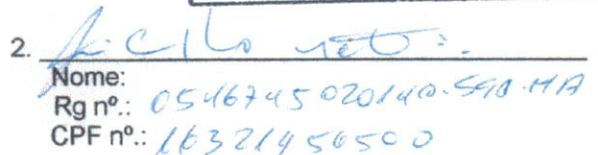 2.
Nome:
Rg nº.: 0516745020140-SSP-MA
CPF nº.: 16321456500